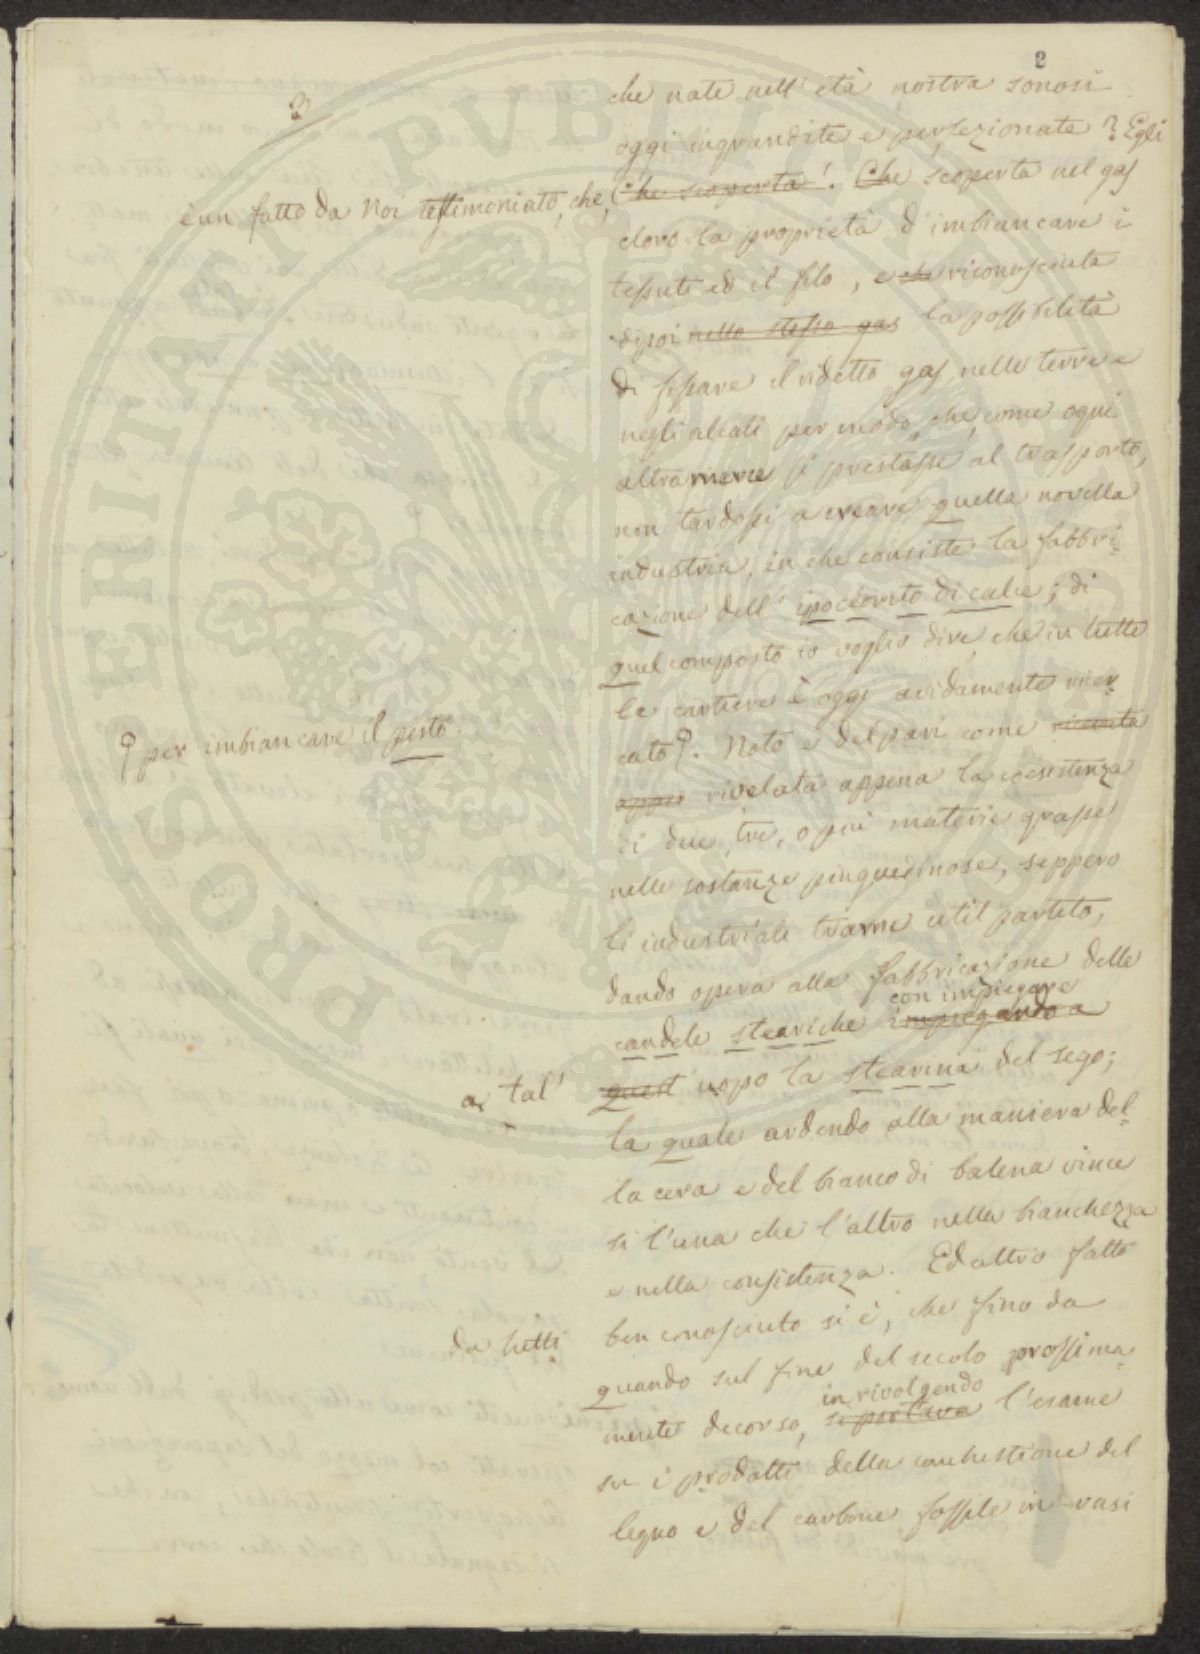 2
3
che nate nell' età nostra sonosi
oggi ingrandite e perfezionate? Egli
è un fatto da Noi testimoniato, che, Che scoperta! Che scoperta nel gas
cloro la proprietà d'imbiancare i
tessuti ed il filo, e che riconosciuta
dipoi nello stesso gas la possibilità
di fissare il ridetto gas nelle terre e
negli alcali per modo, che, come ogni
altra merce si prestasse al trasporto,
non tardossi a creare quella novella
industria, in che consiste la fabbri-
cazione dell' ipoclorito di calce; di
quel composto io voglio dire, che in tutte
le cartiere è oggi avidamente ricer-
cato. Noto e del pari come
per imbiancare il pesto.
appe rivelata appena la coesistenza
di due, tre, o più materie grasse
nelle sostanze pinguedinose, seppero
li industriali trarne util partito,
dando opera alla fabbricazione delle
con impiegare
candele steariche impiegando a
a tal' quest' uopo la stearina del sego;
la quale ardendo alla maniera del-
la cera e del bianco di balena vince
sì l'una che l'altro nella bianchezza
e nella consistenza. Ed altro fatto
da tutti ben conosciuto si è, che fino da
quando sul fine del secolo prossima-
in rivolgendo
mente decorso, si portava l'esame
su i prodotti della combustione del
legno e del carbone fossile in vasi
PROSPERITATI PVBLICAE